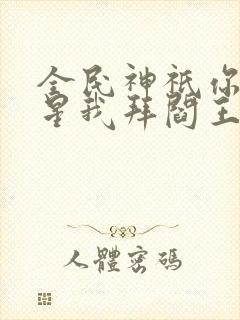 全民神祇你
星我拜閻王
人體密碼